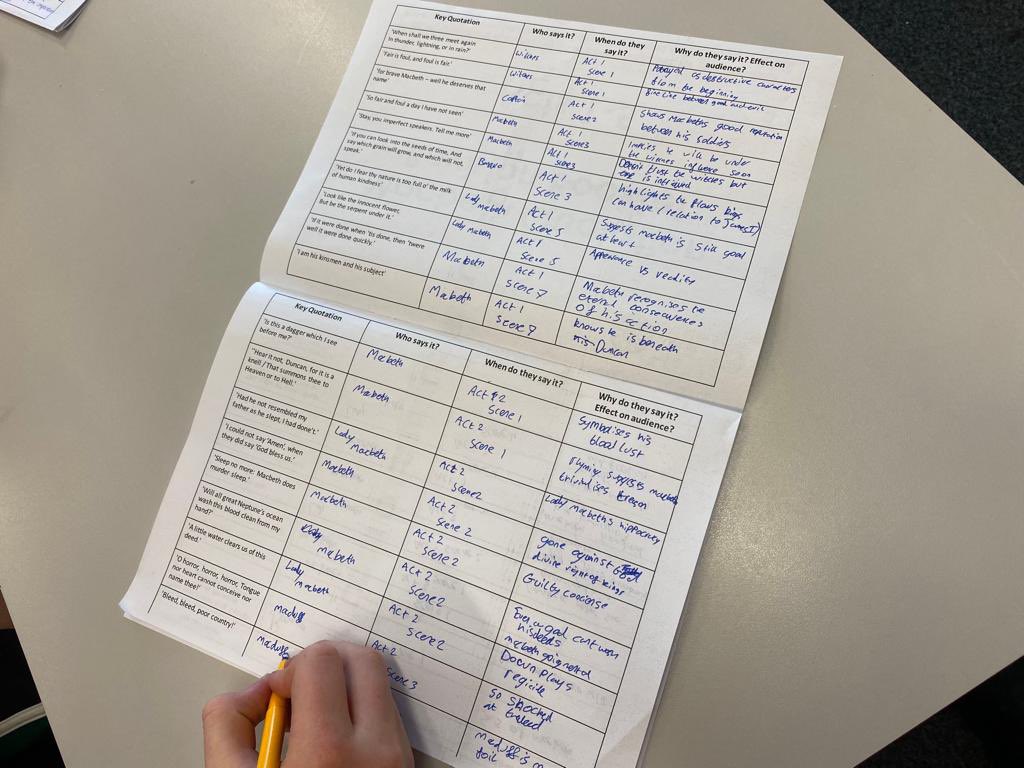 Key Quotation
Who says it?
When do they
say it?
Why do they say it? Effect on
audience?
'When shall we three meet again
In thunder, lightning, or in rain?'
Witches
Act 1
Scene 1
as destructive characters
from the beginning
'Fair is foul, and foul is fair'
Witches
Act
Scene 1
fine line between good and evil
'for brave Macbeth – well he deserves that
name'
Captain
Act 1
Scene 2
Shows Macbeths good reputation
between his soldiers
'So fair and foul a day I have not seen'
Macbeth
Act 1
Scene 3
implies he will be under
the witches influence soon
'Stay, you imperfect speakers. Tell me more'
Macbeth
Act 1
Scene 3
trust the witches but
'If you can look into the seeds of time, And
say which grain will grow, and which will not,
speak.'
Banquo
Act 1
Scene 3
highlights the flaws kings
can have (relation to James I)
'Yet do I fear thy nature is too full o' the milk
of human kindness'
Lady Macbeth
Act 1
Scene 5
Suggests macbeth is still good
at heart
'Look like the innocent flower,
But be the serpent under it.'
Lady Macbeth
Act 1
Scene 5
Appearance VS reality
'If it were done when 'tis done, then 'twere
well it were done quickly.'
Macbeth
Act 1
Scene 7
Macbeth recognises the
eternal consequences
of his action
'I am his kinsmen and his subject'
Macbeth
Act 1
Scene 7
knows he is beneath
Duncan
Key Quotation
Who says it?
When do they say it?
Why do they say it?
Effect on audience?
'Is this a dagger which I see
before me?'
Macbeth
Act 2
Scene 1
Symbolises his
blood lust
'Hear it not, Duncan, for it is a
knell / That summons thee to
Heaven or to Hell.'
Macbeth
Act 2
Scene 1
rhyming suggests macbeth
trivialises treason
'Had he not resembled my
father as he slept, I had done't.'
Lady
Macbeth
Act 2
Scene 2
Lady macbeths hippocracy
'I could not say 'Amen', when
they did say 'God bless us.'
Macbeth
Act 2
Scene 2
gone against
divine right of kings
'Sleep no more: Macbeth does
murder sleep.'
Macbeth
Act 2
Scene 2
Guilty concinse
'Will all great Neptune's ocean
wash this blood clean from my
hand?'
macbeth
Act 2
Scene 2
Even a god cant wash
his deeds
'A little water clears us of this
deed.'
Lady
macbeth
Act 2
Scene 2
Down plays
regicide
'O horror, horror, horror, Tongue
nor heart cannot conceive nor
name thee!'
macduff
Act 2
Scene 3
so shocked
'Bleed, bleed, poor country!'
macduff
macduff is
foil